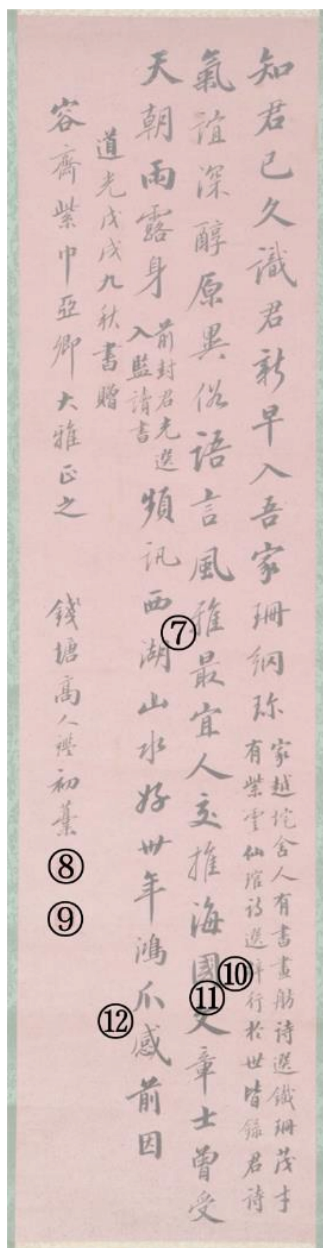 知君已久識君新早入吾家珊網珎
家越垞舍人有書畫舫詩選鐵珊茂才
有紫雲仙琯詩選并行於世皆錄君詩
氣誼深醇原異俗語言風雅最宜人交推海國文章士曾受
天朝雨露身
前封君充選
入監讀書
頻訊西湖山水好卅年鴻爪感前因
道光戊戌九秋書贈
容齋紫巾亞卿大雅正之
錢塘高人鑑初藁
⑦
⑧
⑨
⑩
⑪
⑫